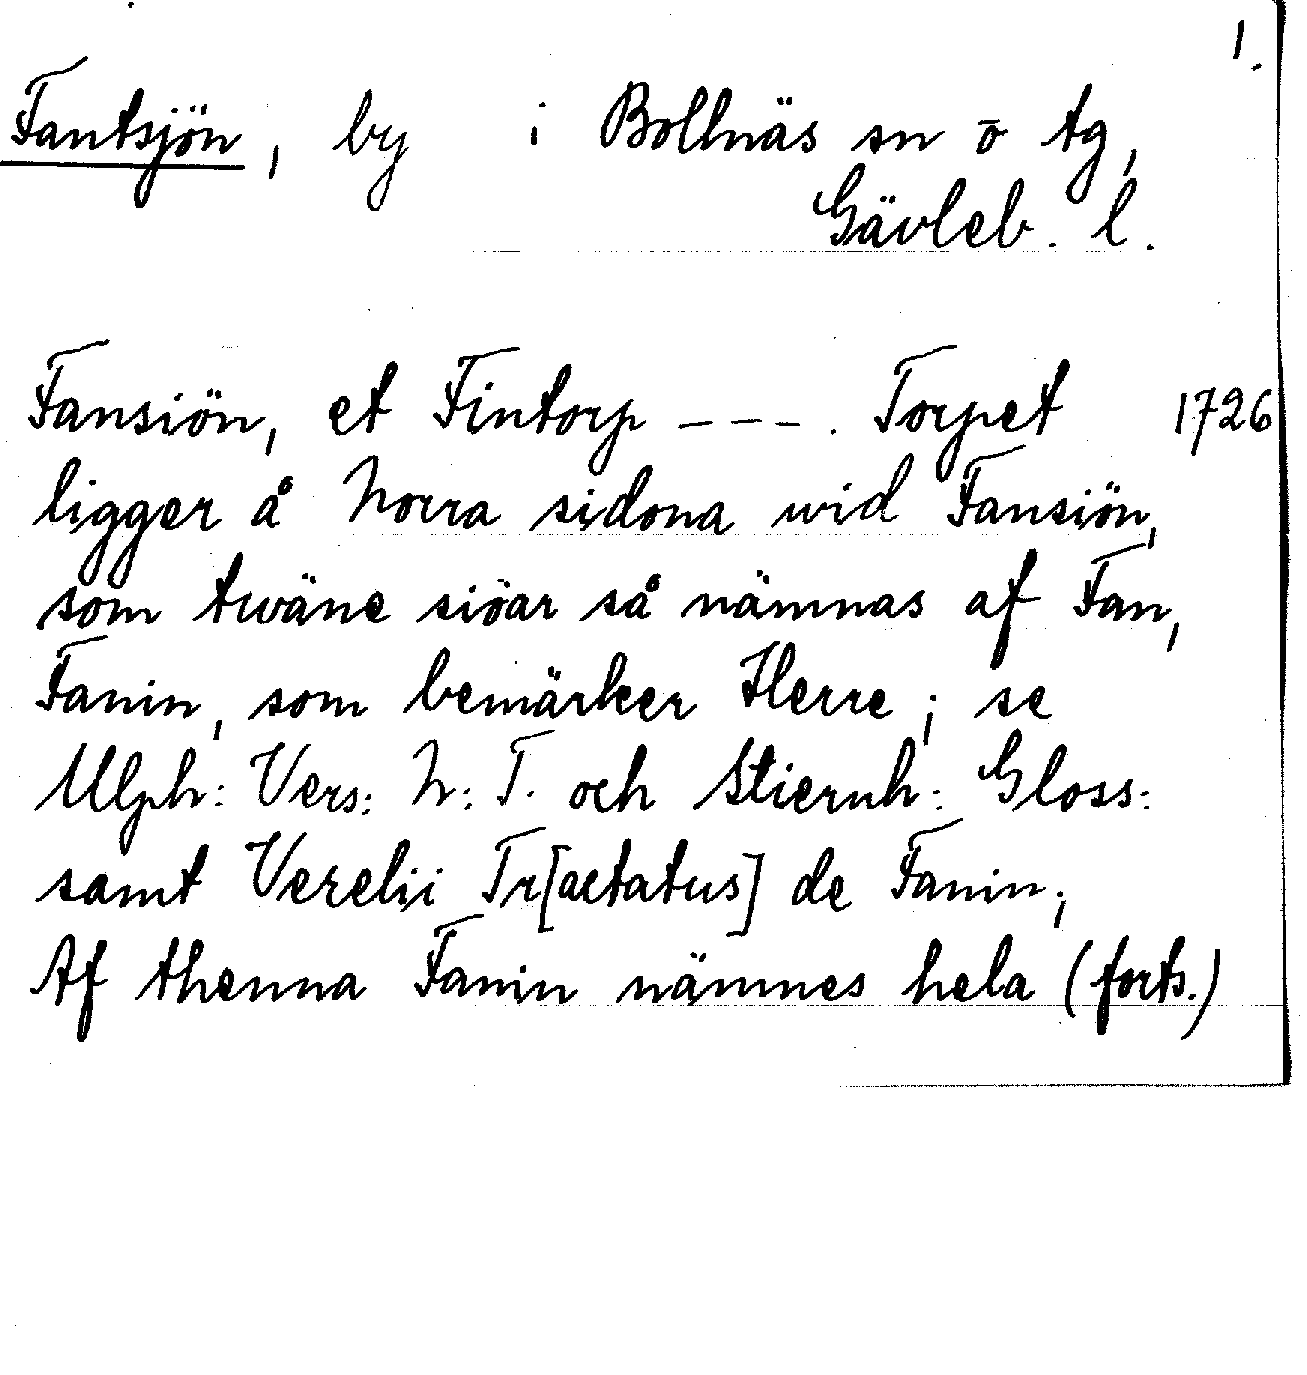 1.
Fantsjön, by i Bollnäs sn o tg,
Gävleb. l.
Fansiön, et Fintorp ---. Torpet 1726
ligger å Norra sidona wid Fansiön,
som twäne siöar så nämnas af Fan,
Fanin, som bemärker Herre; se
Ulph: Vers: N: T. och Stiernh: Gloss:
samt Verelii Tr[actatus] de Fanin;
Af thenna Fanin nämnes hela (forts.)